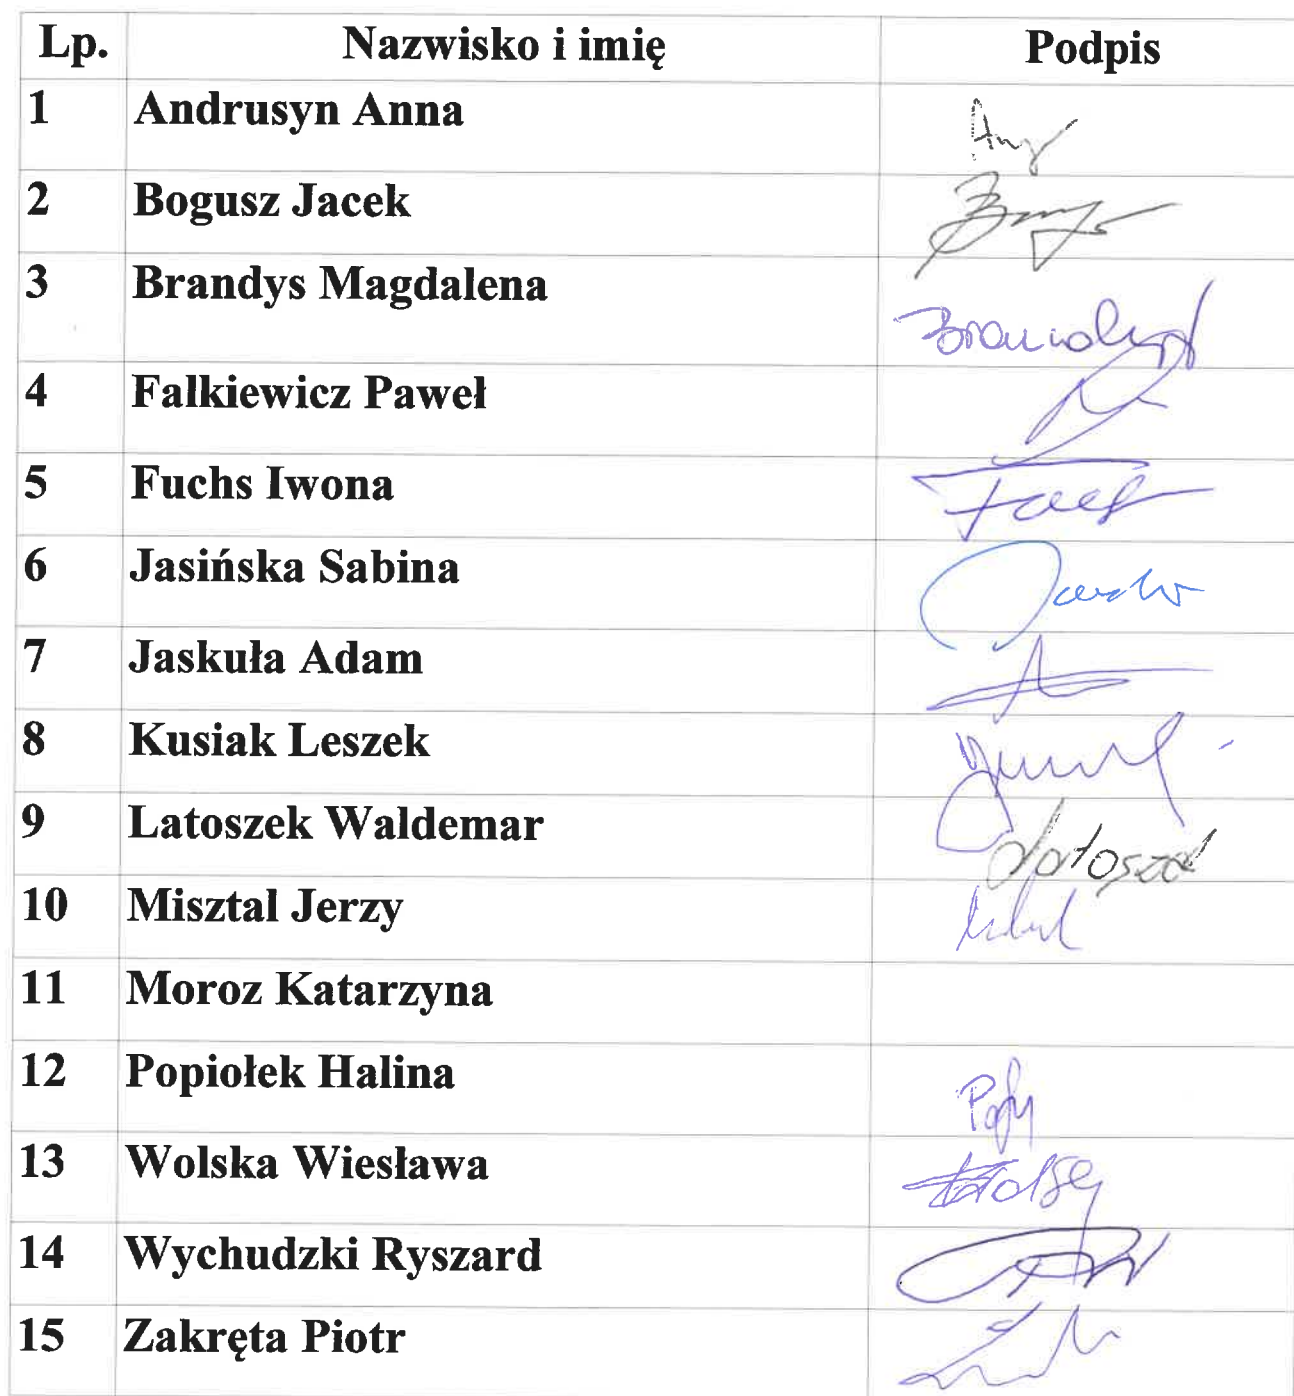 Lp. Nazwisko i imię Podpis
1 Andrusyn Anna
2 Bogusz Jacek
3 Brandys Magdalena
4 Falkiewicz Paweł
5 Fuchs Iwona
6 Jasińska Sabina
7 Jaskuła Adam
8 Kusiak Leszek
9 Latoszek Waldemar
10 Misztal Jerzy
11 Moroz Katarzyna
12 Popiołek Halina
13 Wolska Wiesława
14 Wychudzki Ryszard
15 Zakręta Piotr